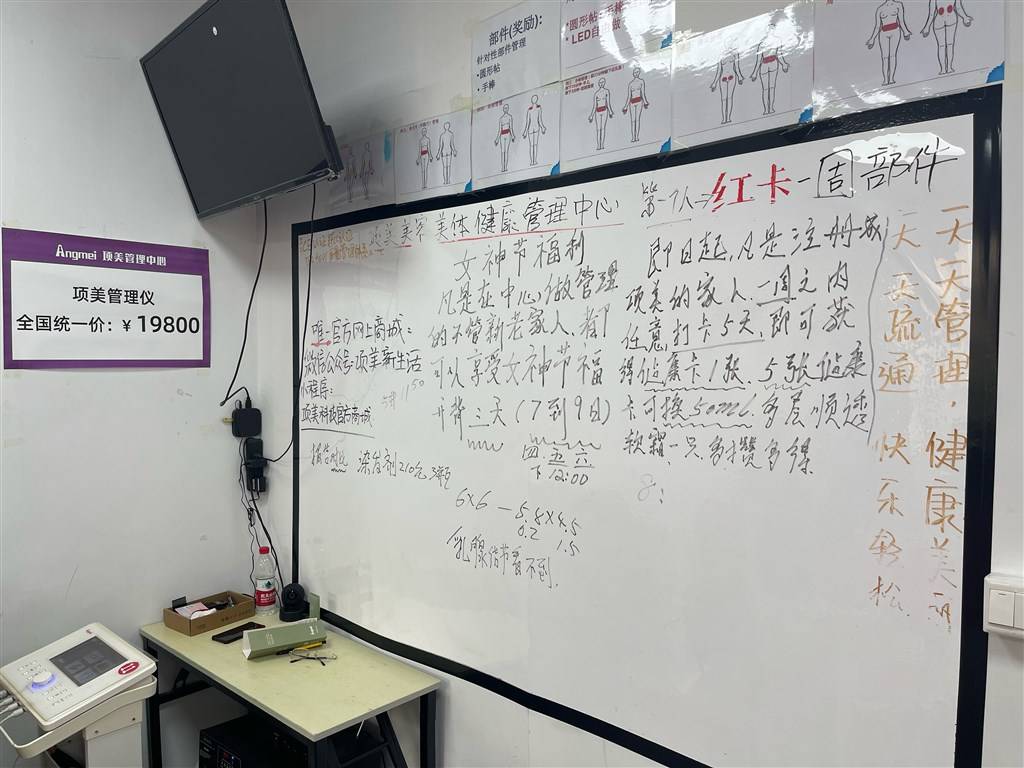 部件(奖励):
针对性部件管理
•圆形帖
•手棒
•圆形帖
•LED自
Angmei 项美管理中心
项美管理仪
全国统一价：￥19800
项美美容美体健康管理中心
女神节福利
凡是在中心做管理
的不管新老家人,都
可以享受女神节福
三天(7到9日)
四 五 六
下 12:00
6×6 — 5.8×4.5
0.2 1.5
乳腺结节看不到.
官方网上商城:
微信公众号:项美新生活
小程序:
项美科技官方商城
染发剂210元
第一
红卡-固部件
即日起,凡是注册成
项美的家人,一周之内
任意打卡5天,即可获
得健康卡1张.5张健康
卡可换50ml.
软 一只多攒多得
8:
天天疏通 快乐轻松
天天管理,健康美丽